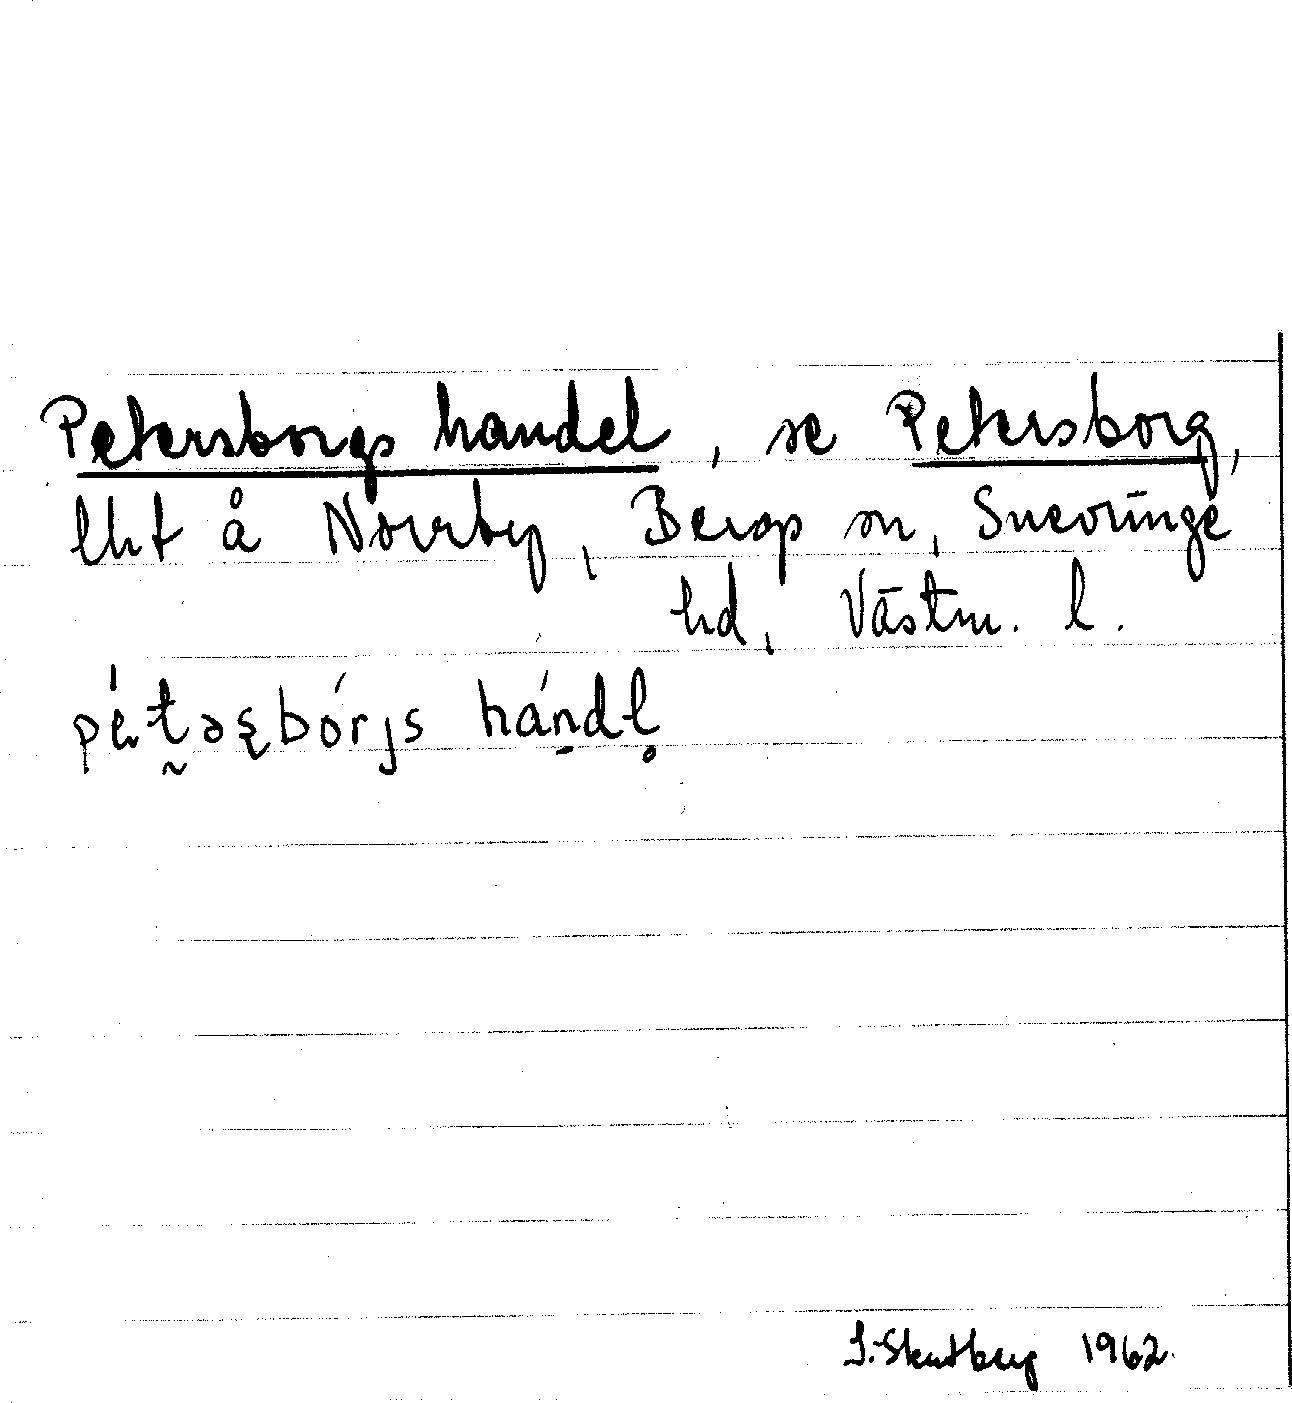 Petersborgs handel, se Petersborg,
lht å Norrby, Bergs sn, Snevringe
hd, Västm. l.
hándl̥
S. Skutberg 1962.